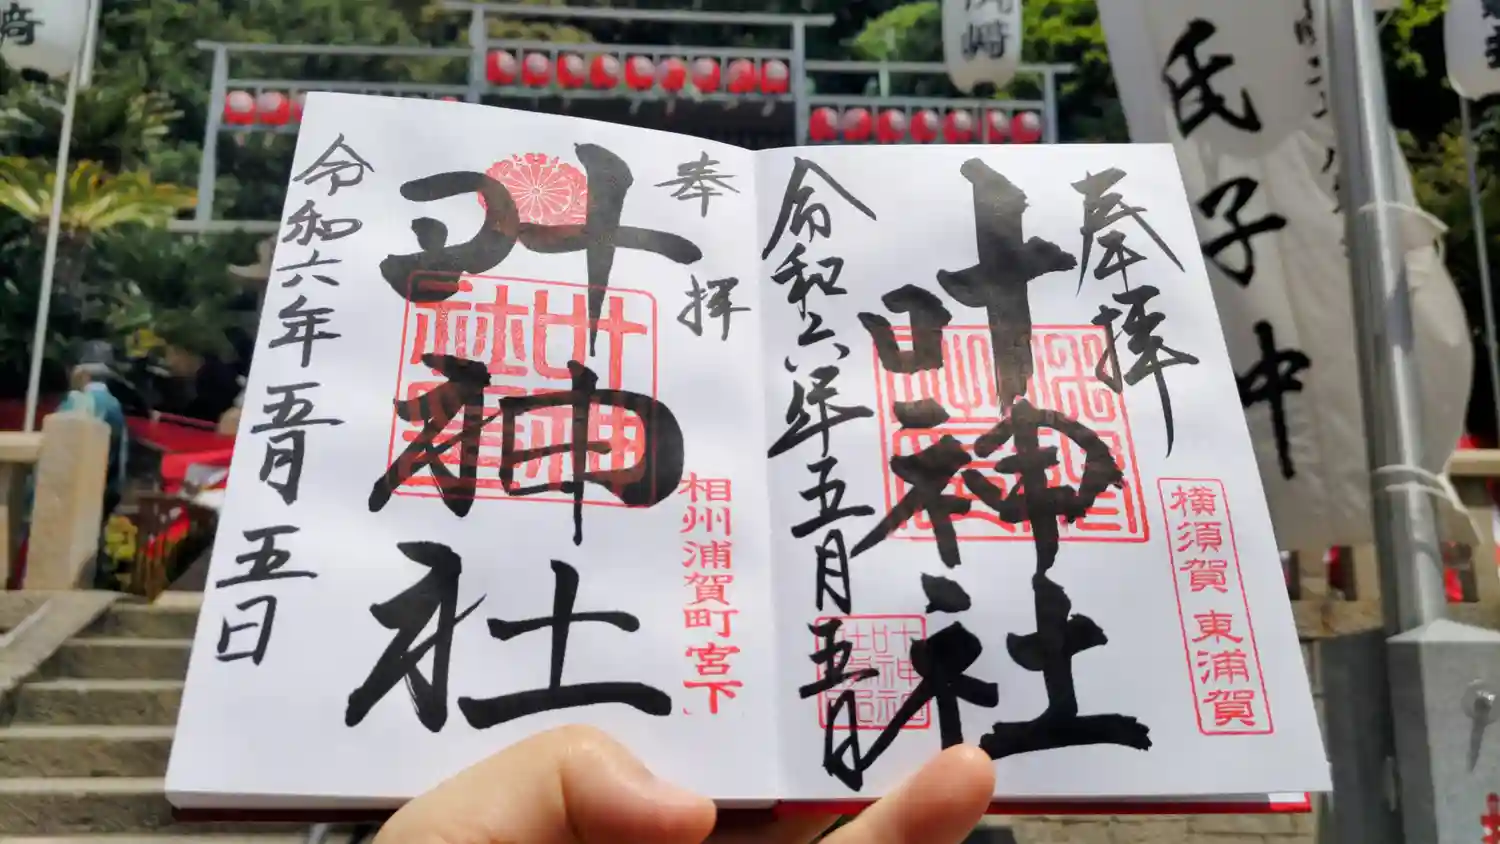 奉拝
叶神社
横須賀 東浦賀
令和六年五月五日
奉拝
叶神社
相州浦賀町宮下
令和六年五月五日
叶神社
氏子中
崎
崎